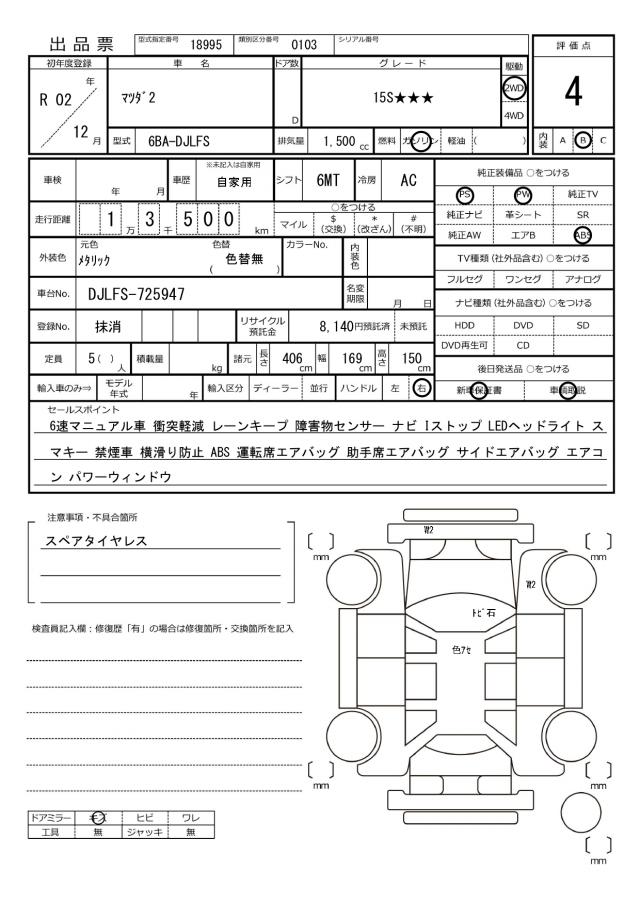 出品票 型式指定番号 18995 類別区分番号 0103 シリアル番号
評価点
4
初年度登録 車名 ドア数 グレード 駆動
R 02 年 / 12 月 ﾏﾂﾀﾞ2 D 15S★★★ 2WD 4WD
型式 6BA-DJLFS 排気量 1,500 cc 燃料 ガソリン 軽油 ( )
内装 A B C
車検 年 月 車歴 ※未記入は自家用 自家用 シフト 6MT 冷房 AC
走行距離 1 万 3 千 5 0 0 km
○をつける
マイル $ (交換) * (改ざん) # (不明)
外装色 元色 ﾒﾀﾘｯｸ 色替 ( 色替無 ) カラーNo. 内装色
車台No. DJLFS-725947 名変期限 月 日
登録No. 抹消 リサイクル預託金 8,140円預託済 未預託
定員 5 ( ) 人 積載量 kg 諸元 長さ 406 cm 幅 169 cm 高さ 150 cm
輸入車のみ⇒ モデル年式 年 輸入区分 ディーラー 並行 ハンドル 左 右
純正装備品 ○をつける
PS PW 純正TV
純正ナビ 革シート SR
純正AW エアB ABS
TV種類 (社外品含む) ○をつける
フルセグ ワンセグ アナログ
ナビ種類 (社外品含む) ○をつける
HDD DVD SD
DVD再生可 CD
後日発送品 ○をつける
新車保証書 車輌取説
セールスポイント
6速マニュアル車 衝突軽減 レーンキープ 障害物センサー ナビ Iストップ LEDヘッドライト ス
マキー 禁煙車 横滑り防止 ABS 運転席エアバッグ 助手席エアバッグ サイドエアバッグ エアコ
ン パワーウィンドウ
注意事項・不具合箇所
スペアタイヤレス
検査員記入欄：修復歴「有」の場合は修復箇所・交換箇所を記入
ドアミラー キズ ヒビ ワレ
工具 無 ジャッキ 無
W2
W2
ﾄﾋﾞ石
色ｱｾ
〔 〕 mm
〔 〕 mm
〔 〕 mm
〔 〕 mm
〔 〕 mm